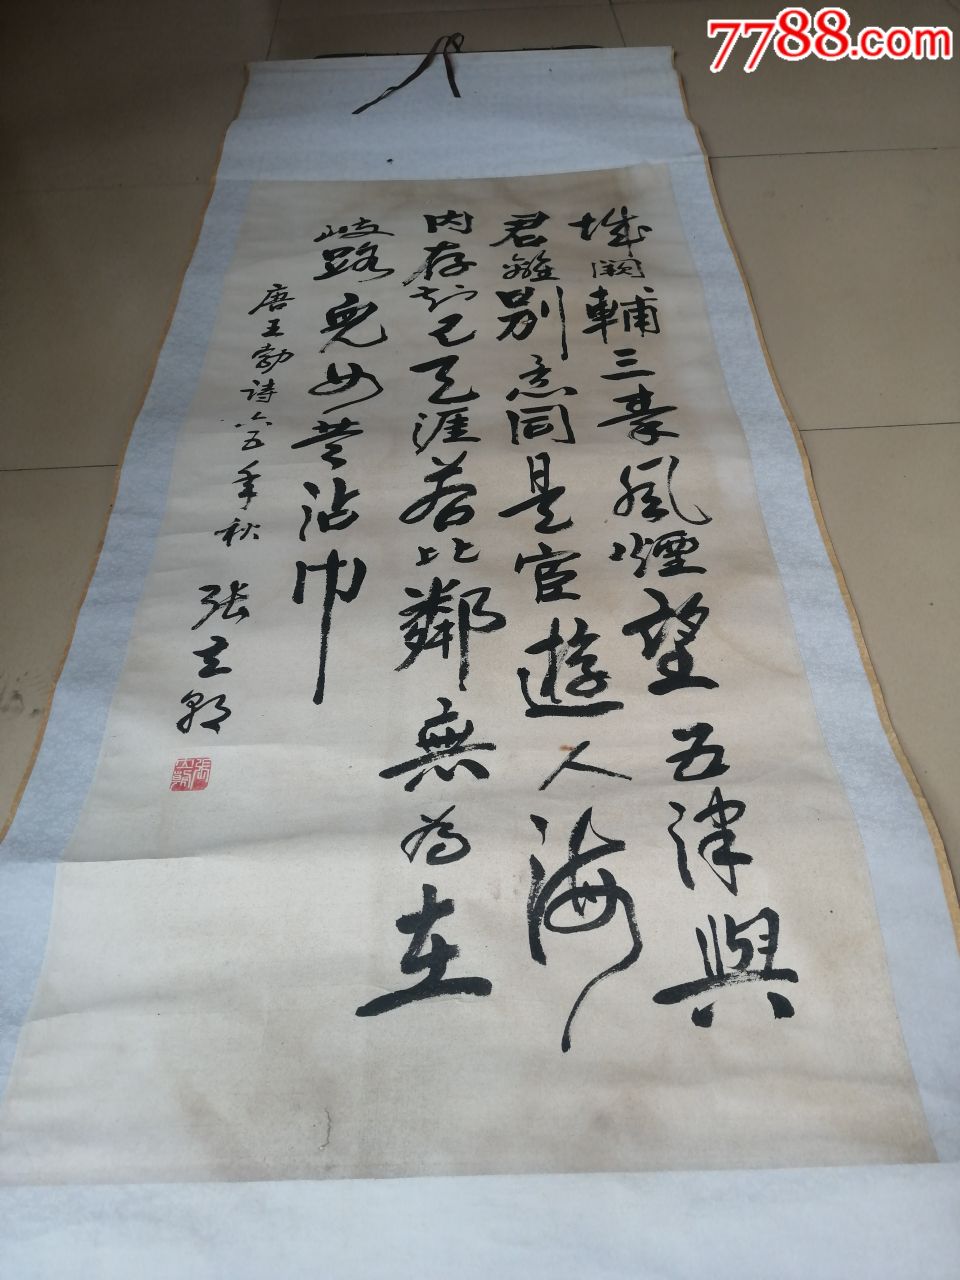 7788.com
城闕輔三秦風煙望五津與
君離別意同是宦遊人海
内存知己天涯若比鄰無為在
歧路兒女共沾巾
唐王勃詩六五年秋
张立